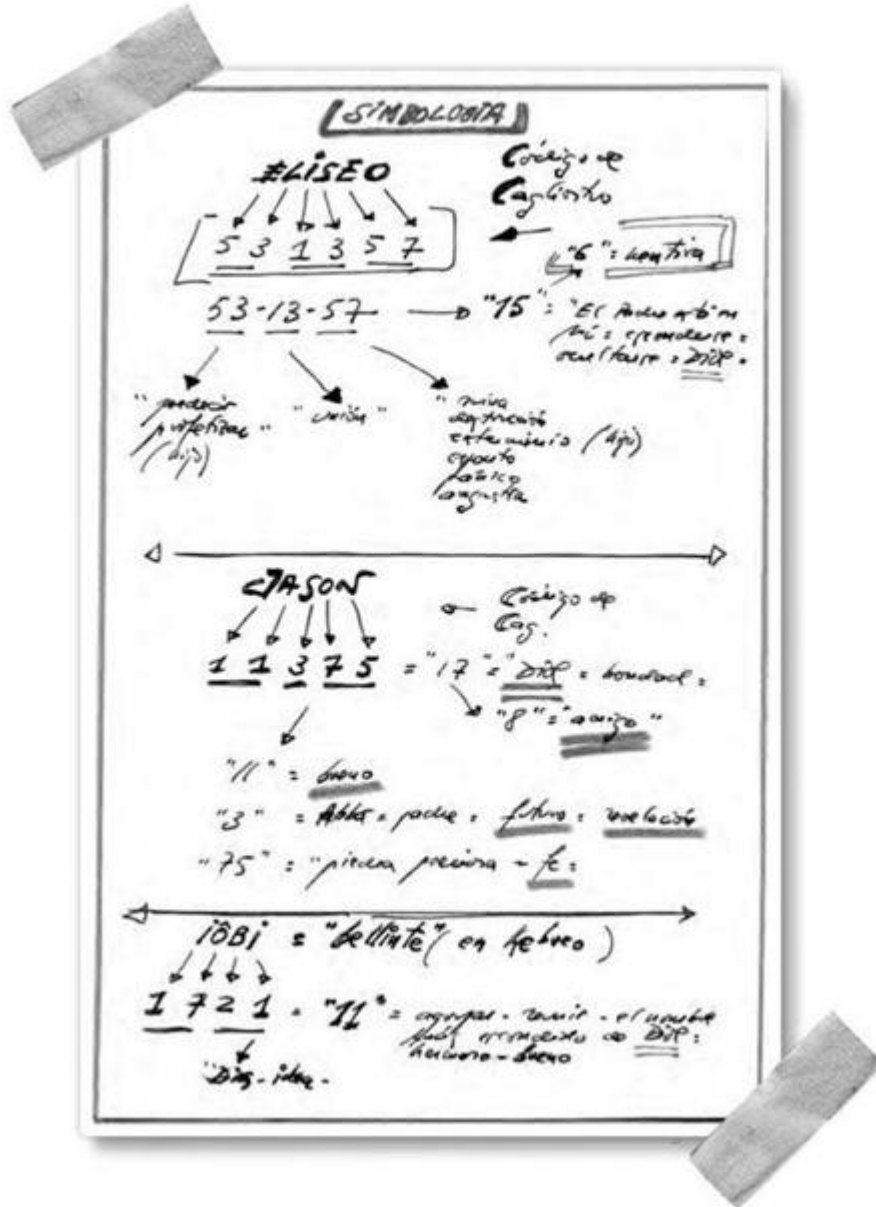 SIMBOLOGÍA
ELISEO
Código de
Cagliostro
5 3 1 3 5 7
"6" = mentira
53-13-57 "15" = "El Padre
= esconderse =
ocultarse = DIOS =
"predecir
profetizar"
(hijo)
"unión"
"ruina
destrucción
exterminio (hijo)
espanto
pánico
angustia
JASON
Código de
Cag.
1 1 3 7 5 = "17" = "DIOS = bondad =
"8" = "amigo"
"11" = bueno
"3" = Abbā = padre = futuro = revelación
"75" = "piedra preciosa = fe =
iÔBi = "bellinte" (en hebreo)
1 7 2 1 = "11" = agrupar - reunir - el nombre
más escondido de DIOS =
hermoso - bueno
"Dios - idea -